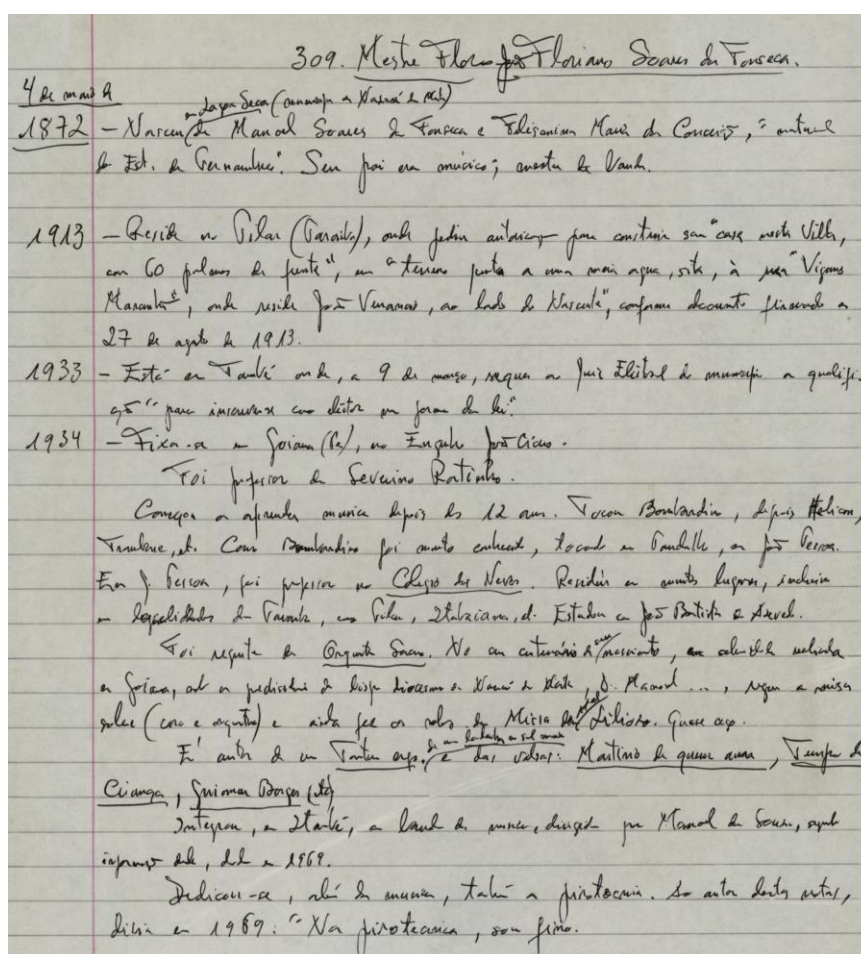 309. Mestre Floro José Floriano Soares da Fonseca.
4 de maio de
em Lagoa Seca (município de Nazaré da Mata)
1872 - Nasceu de Manoel Soares da Fonseca e Maria da Conceição, "natural
do Est. de Pernambuco". Seu pai era músico; mestre de banda.
1913 - Reside no Pilar (Paraíba), onde pediu autorização para construir sua "casa nesta Villa,
com 60 palmos de frente", em "terreno junto a uma meia agua, sita, à rua Vigario
, onde reside José Venancio, ao lado do Nascente", conforme documento firmado a
27 de agosto de 1913.
1933 - Está em Itambé onde, a 9 de março, requer ao Juiz Eleitoral do município a qualifi-
cação "para inscrever-se como eleitor na forma da lei".
1934 - Fixa-se em Goiana (Pe), no Engenho
Foi professor de Severino
Começou a aprender musica depois dos 12 anos. Tocou Bombardino, depois Helicon,
Trombone, etc. Como Bombardino foi muito conhecido, tocando em , em João Pessoa.
Em J. Pessoa, foi professor no Colégio das Neves. Residiu em muitos lugares, inclusive
em localidades da Paraíba, como Pilar, Itabaiana, etc. Estudou com João Batista de
Foi regente de Orquestra Sacra. No centenário de seu nascimento, em celebrada
em Goiana, sob a presidência do bispo diocesano de Nazaré da Mata, D. Manoel ..., regeu a missa
solene (coro e orquestra) e ainda fez os solos da Missa de . Quase cego.
É autor de um Tantum ergo, de um em sol maior e das valsas: Martírio de quem ama, Tempo de
Criança, Guiomar Borges (etc)
Integrou, em Itambé, a banda de musica, dirigida por Manoel de Sousa, segundo
informação dele, dada em 1969.
Dedicou-se, além da musica, também a pirotecnia. Ao autor destas notas,
dizia em 1969: "Na pirotecnica, sou fino.